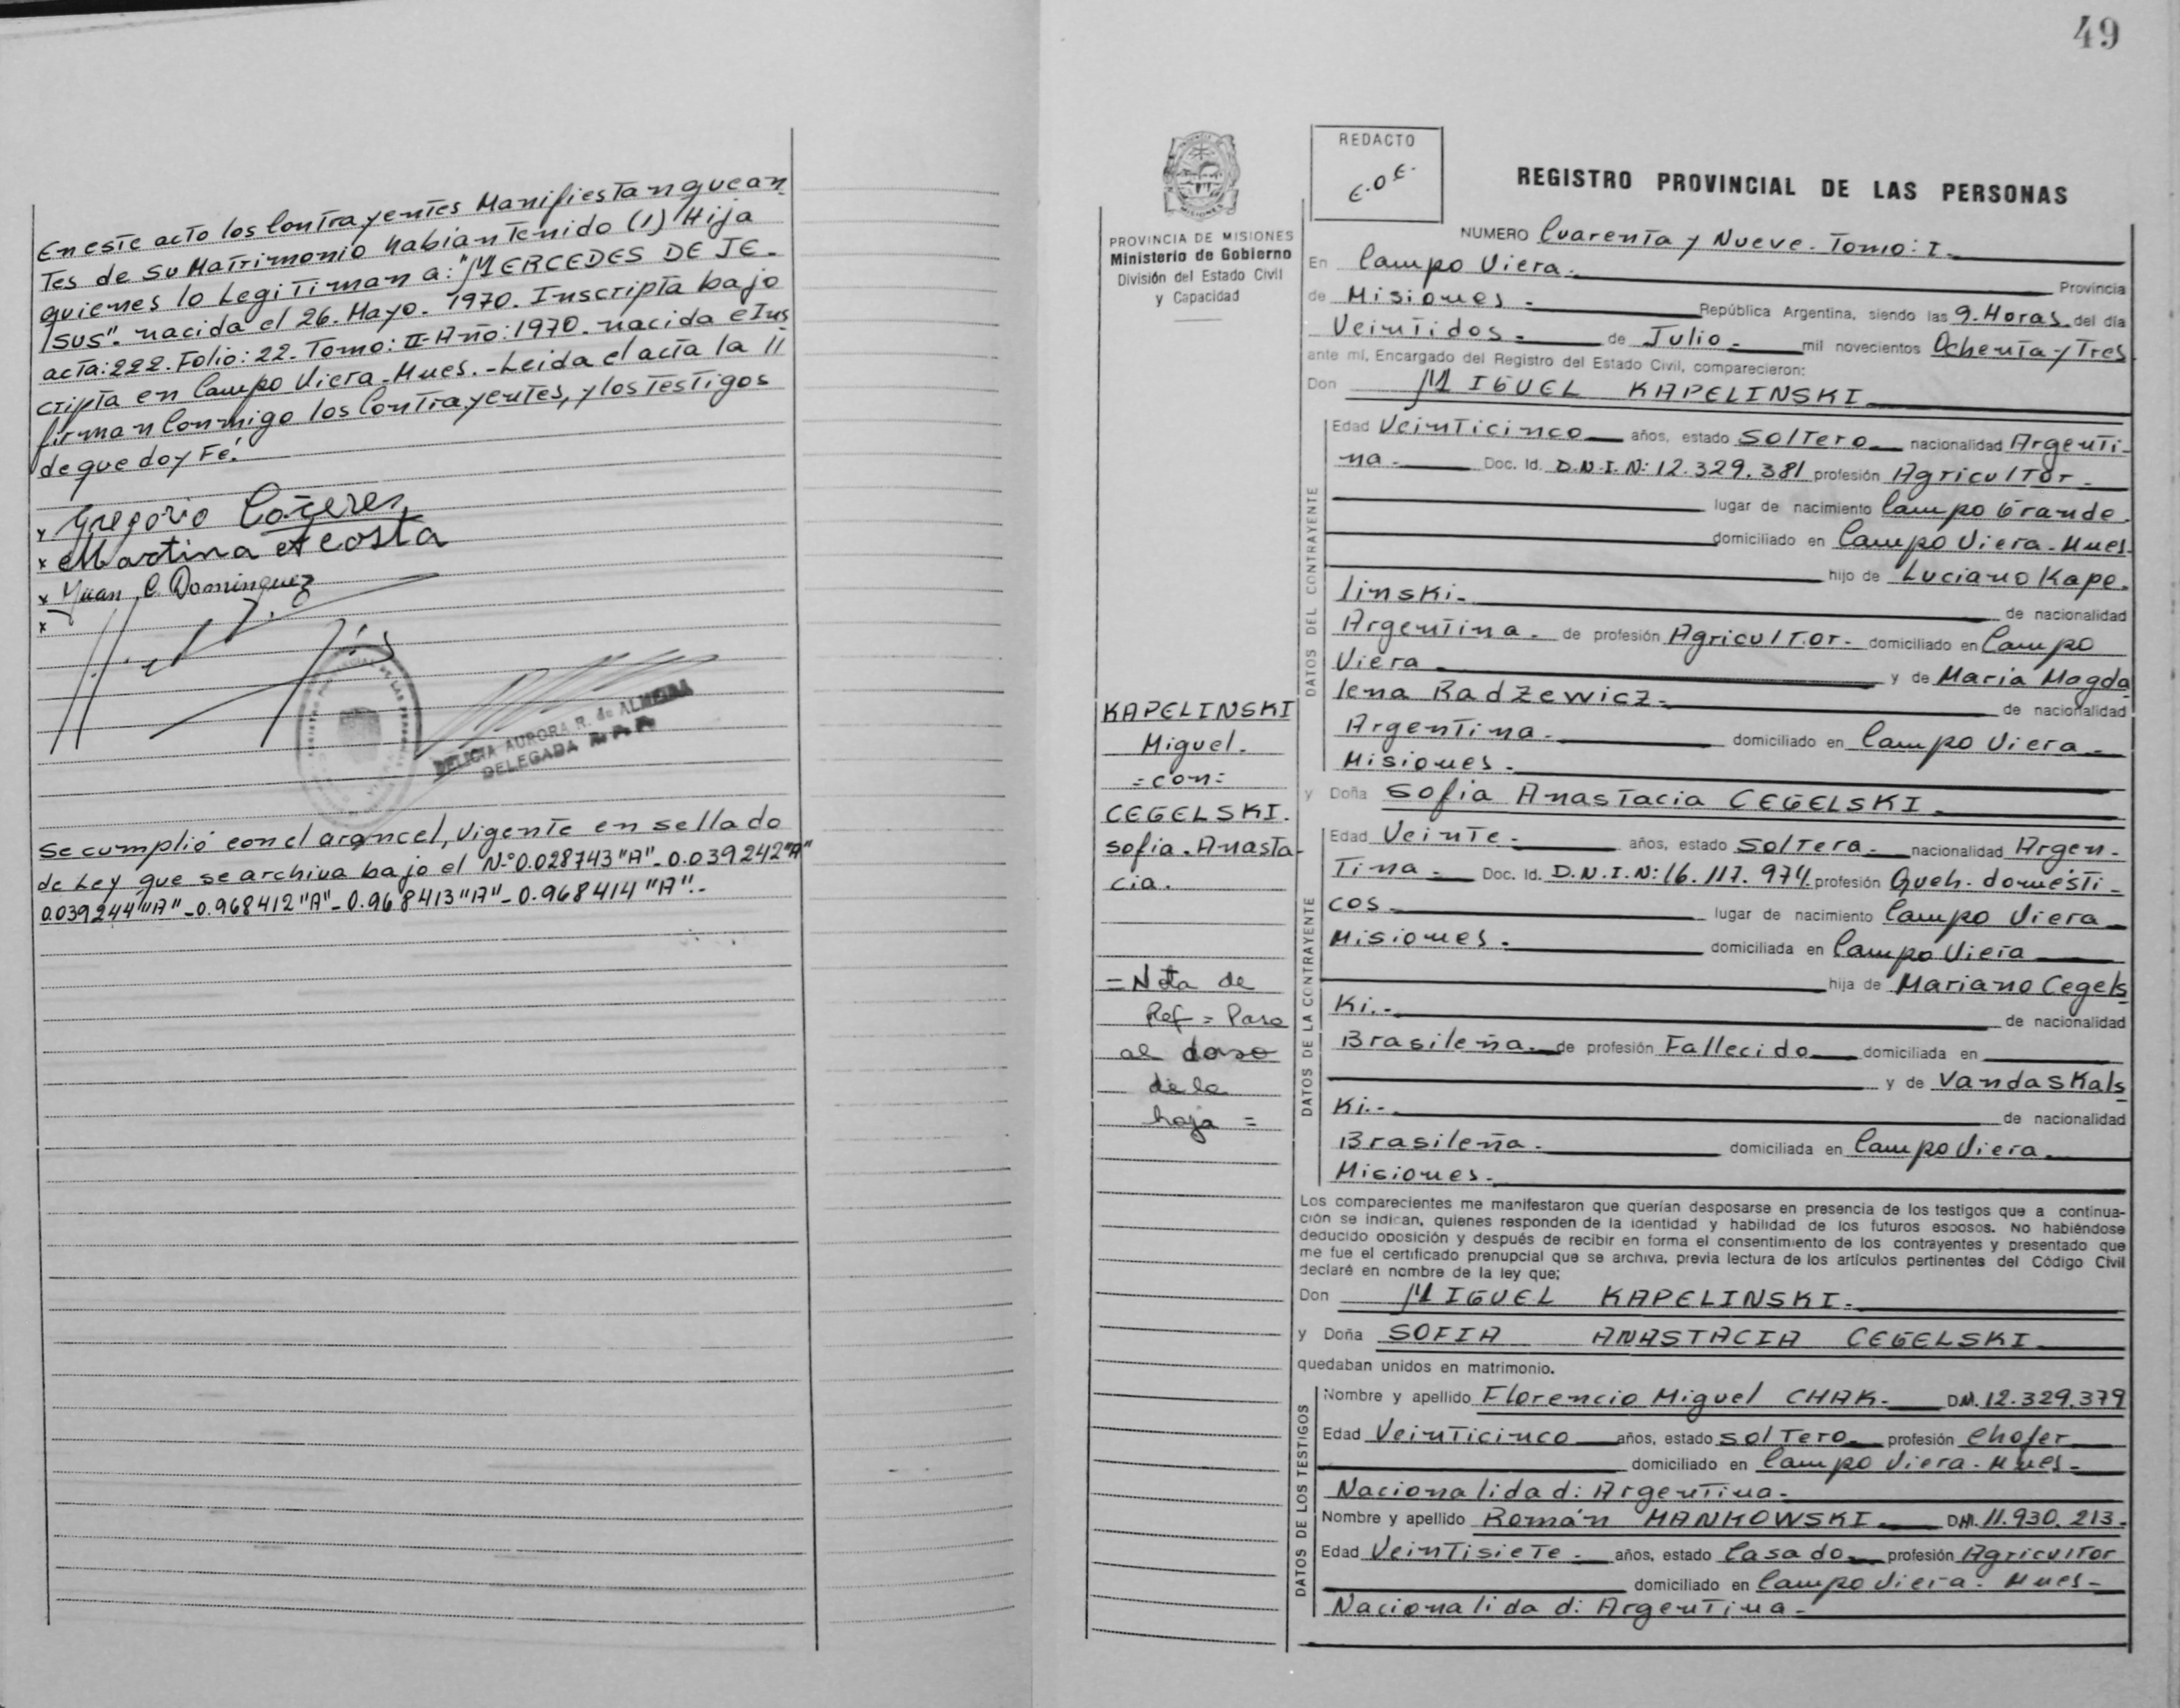 En este acto los Contrayentes Manifiestan que an
Tes de su Matrimonio habian Tenido (1) Hija
quienes lo Legitiman a: "MERCEDES DE JE-
SUS". nacida el 26. Mayo. 1970. Inscripta bajo
acta: 222. Folio: 22. Tomo: II-Año: 1970. nacida e Ins
cripta en Campo Viera-Mnes. - Leida el acta la
firman Conmigo los Contrayentes, y los Testigos
de que doy Fé.
x Gregorio Cáceres
x Martina Acosta
x Juan C. Dominguez
x
DELICIA AURORA R. de ALMEIDA
DELEGADA R. P. P.
Se cumplió con el arancel, vigente en sellado
de Ley que se archiva bajo el N° 0.028743 "A"- 0.039242 "A"
0.039244 "A" - 0.968412 "A" - 0.968413 "A" - 0.968414 "A".-
49
PROVINCIA DE MISIONES
Ministerio de Gobierno
División del Estado Civil
y Capacidad
KAPELINSKI
Miguel.
= con =
CEGELSKI.
Sofia. Anasta-
cia.
= Nota de
Ref = Pasa
al dorso
de la
hoja =
REDACTO
E.O.E.
REGISTRO PROVINCIAL DE LAS PERSONAS
NUMERO Cuarenta y Nueve. Tomo: I.
En Campo Viera. Provincia
de Misiones - República Argentina, siendo las 9. Horas. del día
Veintidos - de Julio - mil novecientos Ochenta y Tres
ante mí, Encargado del Registro del Estado Civil, comparecieron:
Don MIGUEL KAPELINSKI
DATOS DEL CONTRAYENTE
Edad Veinticinco años, estado Soltero nacionalidad Argenti-
na. Doc. Id. D.N.I. N: 12.329.381 profesión Agricultor -
lugar de nacimiento Campo Grande.
domiciliado en Campo Viera - Mnes.
hijo de Luciano Kape.
linski. de nacionalidad
Argentina. de profesión Agricultor. domiciliado en Campo
Viera y de Maria Magda
lena Radzewicz. de nacionalidad
Argentina. domiciliado en Campo Viera
Misiones.
y Doña Sofia Anastacia CEGELSKI
DATOS DE LA CONTRAYENTE
Edad Veinte. años, estado Soltera. nacionalidad Argen-
Tina - Doc. Id. D.N.I. N: 16.117.974 profesión Queh. domésti-
cos. lugar de nacimiento Campo Viera
Misiones. domiciliada en Campo Viera
hija de Mariano Cegels
ki.- de nacionalidad
Brasileña. de profesión Fallecido domiciliada en
y de Vanda Skals
ki.- de nacionalidad
Brasileña. domiciliada en Campo Viera.
Misiones.
Los comparecientes me manifestaron que querían desposarse en presencia de los testigos que a continua-
ción se indican, quienes responden de la identidad y habilidad de los futuros esposos. No habiéndose
deducido oposición y después de recibir en forma el consentimiento de los contrayentes y presentado que
me fue el certificado prenupcial que se archiva, previa lectura de los artículos pertinentes del Código Civil
declaré en nombre de la ley que;
Don MIGUEL KAPELINSKI.
y Doña SOFIA ANASTACIA CEGELSKI
quedaban unidos en matrimonio.
DATOS DE LOS TESTIGOS
Nombre y apellido Florencio Miguel CHAK. DNI. 12.329.379
Edad Veinticinco años, estado Soltero profesión Chofer
domiciliado en Campo Viera - Mnes-
Nacionalidad: Argentina.
Nombre y apellido Román HANKOWSKI DNI. 11.930.213.
Edad Veintisiete - años, estado Casado profesión Agricultor
domiciliado en Campo Viera. Mnes-
Nacionalidad: Argentina.